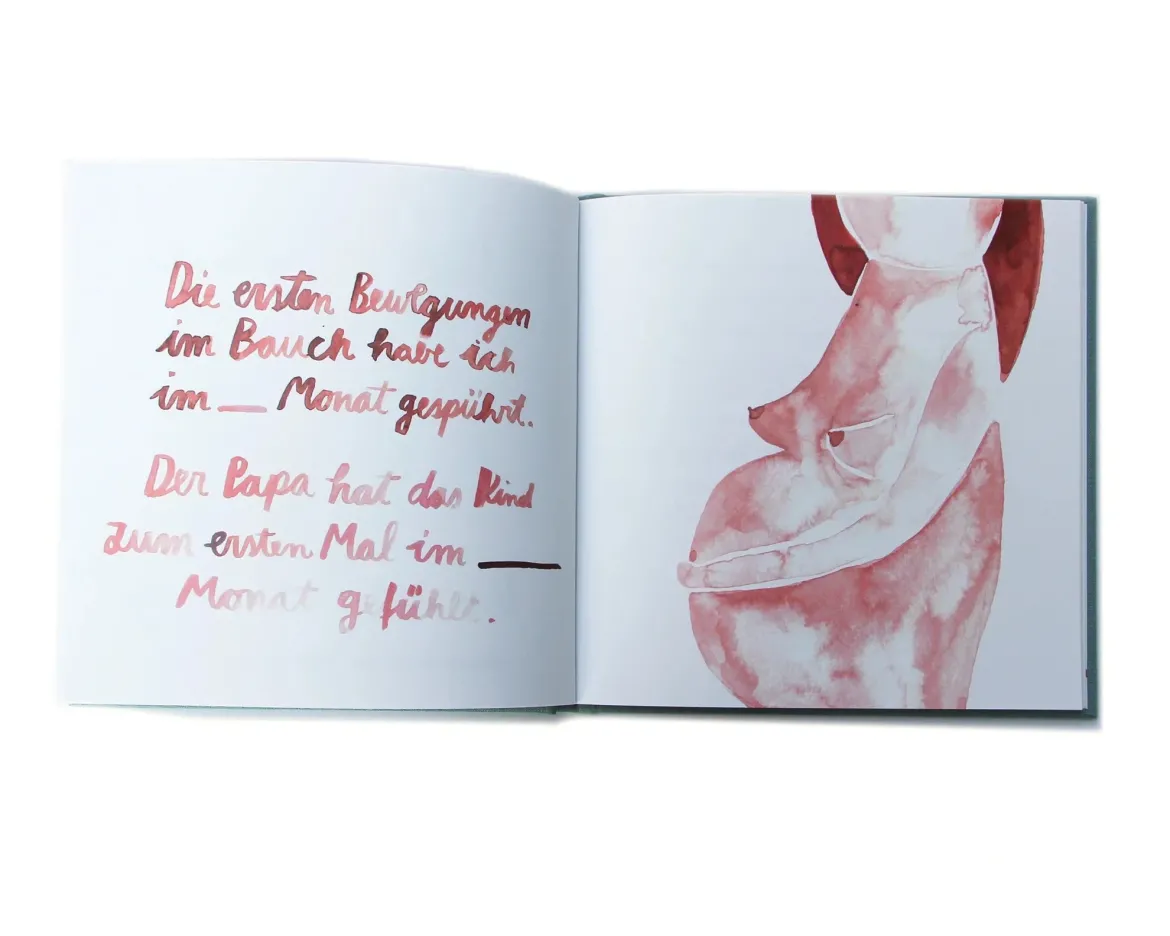 Die ersten Bewegungen
im Bauch habe ich
im __ Monat gespührt.
Der Papa hat das Kind
zum ersten Mal im ___
Monat gefühlt.